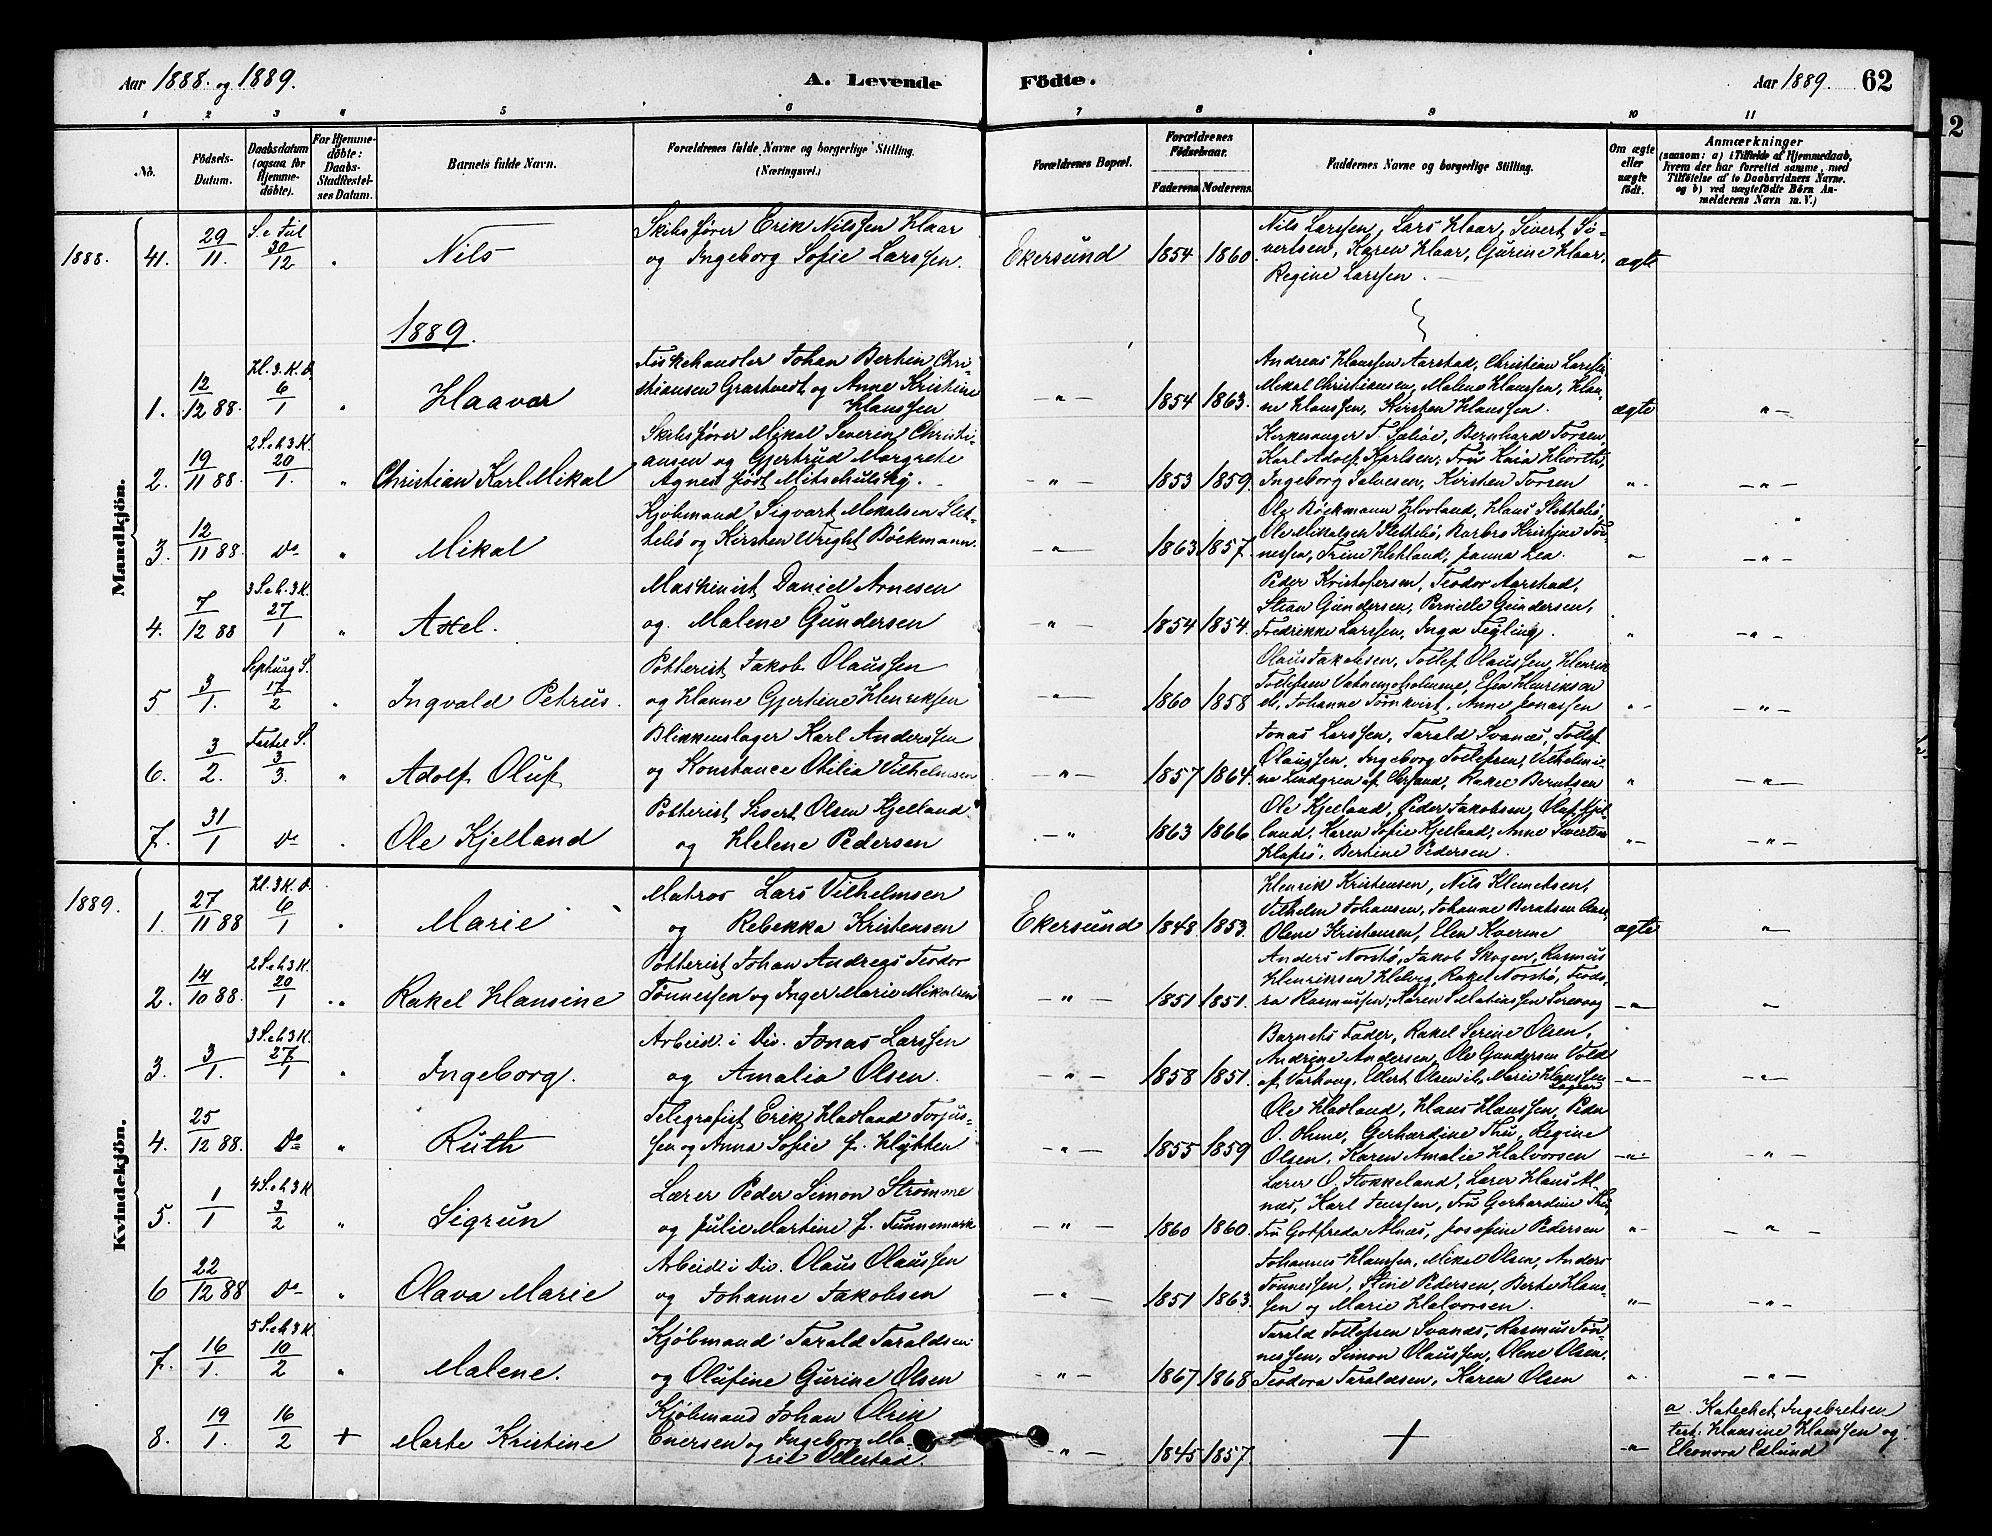 Aar 1888. og 1889.
A. Levende
Födte.
Aar 1889.
62
12
1 2 3 " 5 6 7 8 9 10 11
No.
Födsels-
Datum.
Daabsdatum
(ogsaa for
Hjemme-
döbte).
For Hjemme-
döbte:
Daabs-
Stadfæstel-
ses Datum.
Barnets fulde Navn.
Forældrenes fulde Navne og borgerlige Stilling.
(Næringsvei.)
Forældrenes Bopæl.
Forældrenes
Födselsaar.
Faderens. Moderens.
Faddernes Navne og borgerlige Stilling.
Om ægte
eller
uægte
födt.
Anmærkninger
(saasom: a) i Tilfælde af Hjemmedaab,
hvem der har forrettet samme, med
Tilföielse af to Daabsvidners Navne.
og b) ved uægtefödte Börn An-
melderens Navn m. V.)
Mandkjön.
1888. 41. 29/11. S. e Jul 30/12 " Nils
Skibsfører Erik Nilssen Haar
og Ingeborg Sofie Larssen.
Ekersund 1854 1860.
Nils Larssen, Lars Haar, Sivert Sø-
vertsen, Karen Haar, Gurine Haar,
Regine Larssen.
ægte
1889.
1. 12/12 88. Hl. 3. K. D. 6/1 " Haavar
Fiskehandler Johan Bertin Chri-
stiansen Grastvedt og Anne Kristine
Hanssen
— " — 1854 1863.
Andreas Hanssen Aarstad, Christian Larssen
Mikal Christiansen, Malene Hanssen, Han-
ne Hanssen, Kirsten Hanssen.
ægte " —
2. 19/11 88. 2 S. e. h. 3 K. 20/1. " Christian Karl Mikal
Skibsfører Mikal Severin Christi-
ansen og Gjertrud Margrete
Agnes født Mitschulsky.
— " — 1853 1859.
Kirkesanger T. Sæliøe, Bernhard Torsen,
Karl Adolf Karlsen, Fru Kaia Hiorth,
Ingeborg Salvesen, Kirsten Torsen
" — " —
3. 12/11 88. Do " Mikal
Kjøbmand Sigvart Mikalsen Slet-
tebø og Kirsten Wright Bøckmann.
— " — 1863 1857.
Ole Bøckmann Hovland, Hans Slettebø,
Ole Mikalsen Slettebø, Barbro Kristine Tøn-
nessen, Trine Hetland, Janna Lea.
" — " —
4. 7/12 88 3 S. e. h. 3 K. 27/1 " Axel.
Maskinist Daniel Arnesen
og Malene Gundersen
— " — 1854 1854.
Peder Kristofersen, Teodor Aarstad,
Stian Gundersen, Pernille Gundersen,
Fredrikke Larssen, Inga Feyling.
" — " —
5 3/1. Septuag S. 17/2 " Ingvald Petrus.
Potterist Jakob Olaussen
og Hanne Gjertine Henriksen
— " — 1860 1858
Olaus Jakobsen, Tollef Olaussen, Henrik
Tollefsen Vatnemoholmene, Elen Henriksen
ib, Johanne Tørnkvist, Anne Jonassen
" — " —
6. 3/2. Fastel. S. 3/3. " Adolf Oluf
Blikkenslager Karl Anderssen
og Konstance Otilia Vilhelmsen
— " — 1857 1864.
Jonas Larssen, Tarald Svanæs, Tollef
Olaussen, Ingeborg Tollefsen, Vilhelmi-
ne Lindgren af Chrsand, Rakel Berntsen
" — " —
7. 31/1 Do . Ole Kjelland
Potterist Sivert Olsen Kjelland
og Helene Pedersen
— " 1863 1866.
Ole Kjelland, Peder Jakobsen, Oluf Kjel-
land, Karen Sofie Kjelland, Anne Sivertsen
Hafsø, Bertine Pedersen.
" — " —
Kvindekjön.
1889. 1. 27/11 88 Hl. 3 K. D. 6/1 " Marie
Matros Lars Vilhelmsen
og Rebekka Kristensen
Ekersund 1848. 1853.
Henrik Kristensen, Nils Klemetsen,
Vilhelm Johansen, Johanne Berntsen Aase
Olene Kristensen, Elen Kverme
ægte "
2. 14/10 88. 2 S. e. h. 3 K. 20/1 " Rakel Hansine
Potterist Johan Andreas Teodor
Tønnessen og Inger Marie Mikalsen
— " — 1851 1851.
Anders Norstø, Jakob Skogen, Rasmus
Henrikssen Helvig, Rakel Norstø, Teodo-
ra Rasmussen, Karen S. Matiassen Sirevaag
" "
3. 3/1. 3 S. e. h. 3 K. 27/1 " Ingeborg.
Arbeid. i Div. Jonas Larssen
og Amalia Olsen.
— " — 1858 1851.
Barnets Fader, Rakel Serine Olsen,
Andrine Andersen, Ole Gundersen Vold
af Varhoug, Ellert Olsen ib, Marie Hanssen
" — " —
4. 25/12 88. Do " Ruth
Telegrafist Erik Hadland Torjus-
sen og Anna Sofie f. Klykken
— " — 1855 1859
Ole Hadland, Hans Hanssen, Peder
O. Ohme, Gerhardine Thu, Regine
Olsen, Karen Amalie Halvorsen
" — " —
5. 1/1 4 S. e. h. 3 K. 3/2 " Sigrun
Lærer Peder Simon Strømme
og Julie Martine f. Tunnemark
— " — 1860 1860.
Lærer O. Stokkeland, Lærer Hans Al-
næs, Karl Jenssen, Fru Gerhardine Thu,
Fru Gotfreda Alnæs, Josefine Pedersen
" — " —
6 22/12 88 Do " Olava Marie
Arbeid. i Div. Olaus Olaussen
og Johanne Jakobsen
— " — 1851 1863.
Johannes Hanssen, Mikal Olsen, Anders
Tønnessen, Stine Pedersen, Berte Hans-
sen og Marie Halvorsen.
" — " —
7. 16/1. 5 S. e. h. 3 K. 10/2 " Malene.
Kjøbmand Tarald Taraldsen
og Olufine Gurine Olsen
— " — 1867 1868
Tarald Tollefsen Svanæs, Rasmus Tøn-
nessen, Simon Olaussen, Olene Olsen,
Teodora Taraldsen, Karen Olsen
" — " —
8. 19/1. 16/2 + Marte Kristine
Kjøbmand Johan Olrik
Enersen og Ingeborg Ma-
rie Ollestad.
— " — 1845 1857.
+
"
a. Kateket Ingebretsen
test: Hansine Hanssen og
Eleonora Edlund